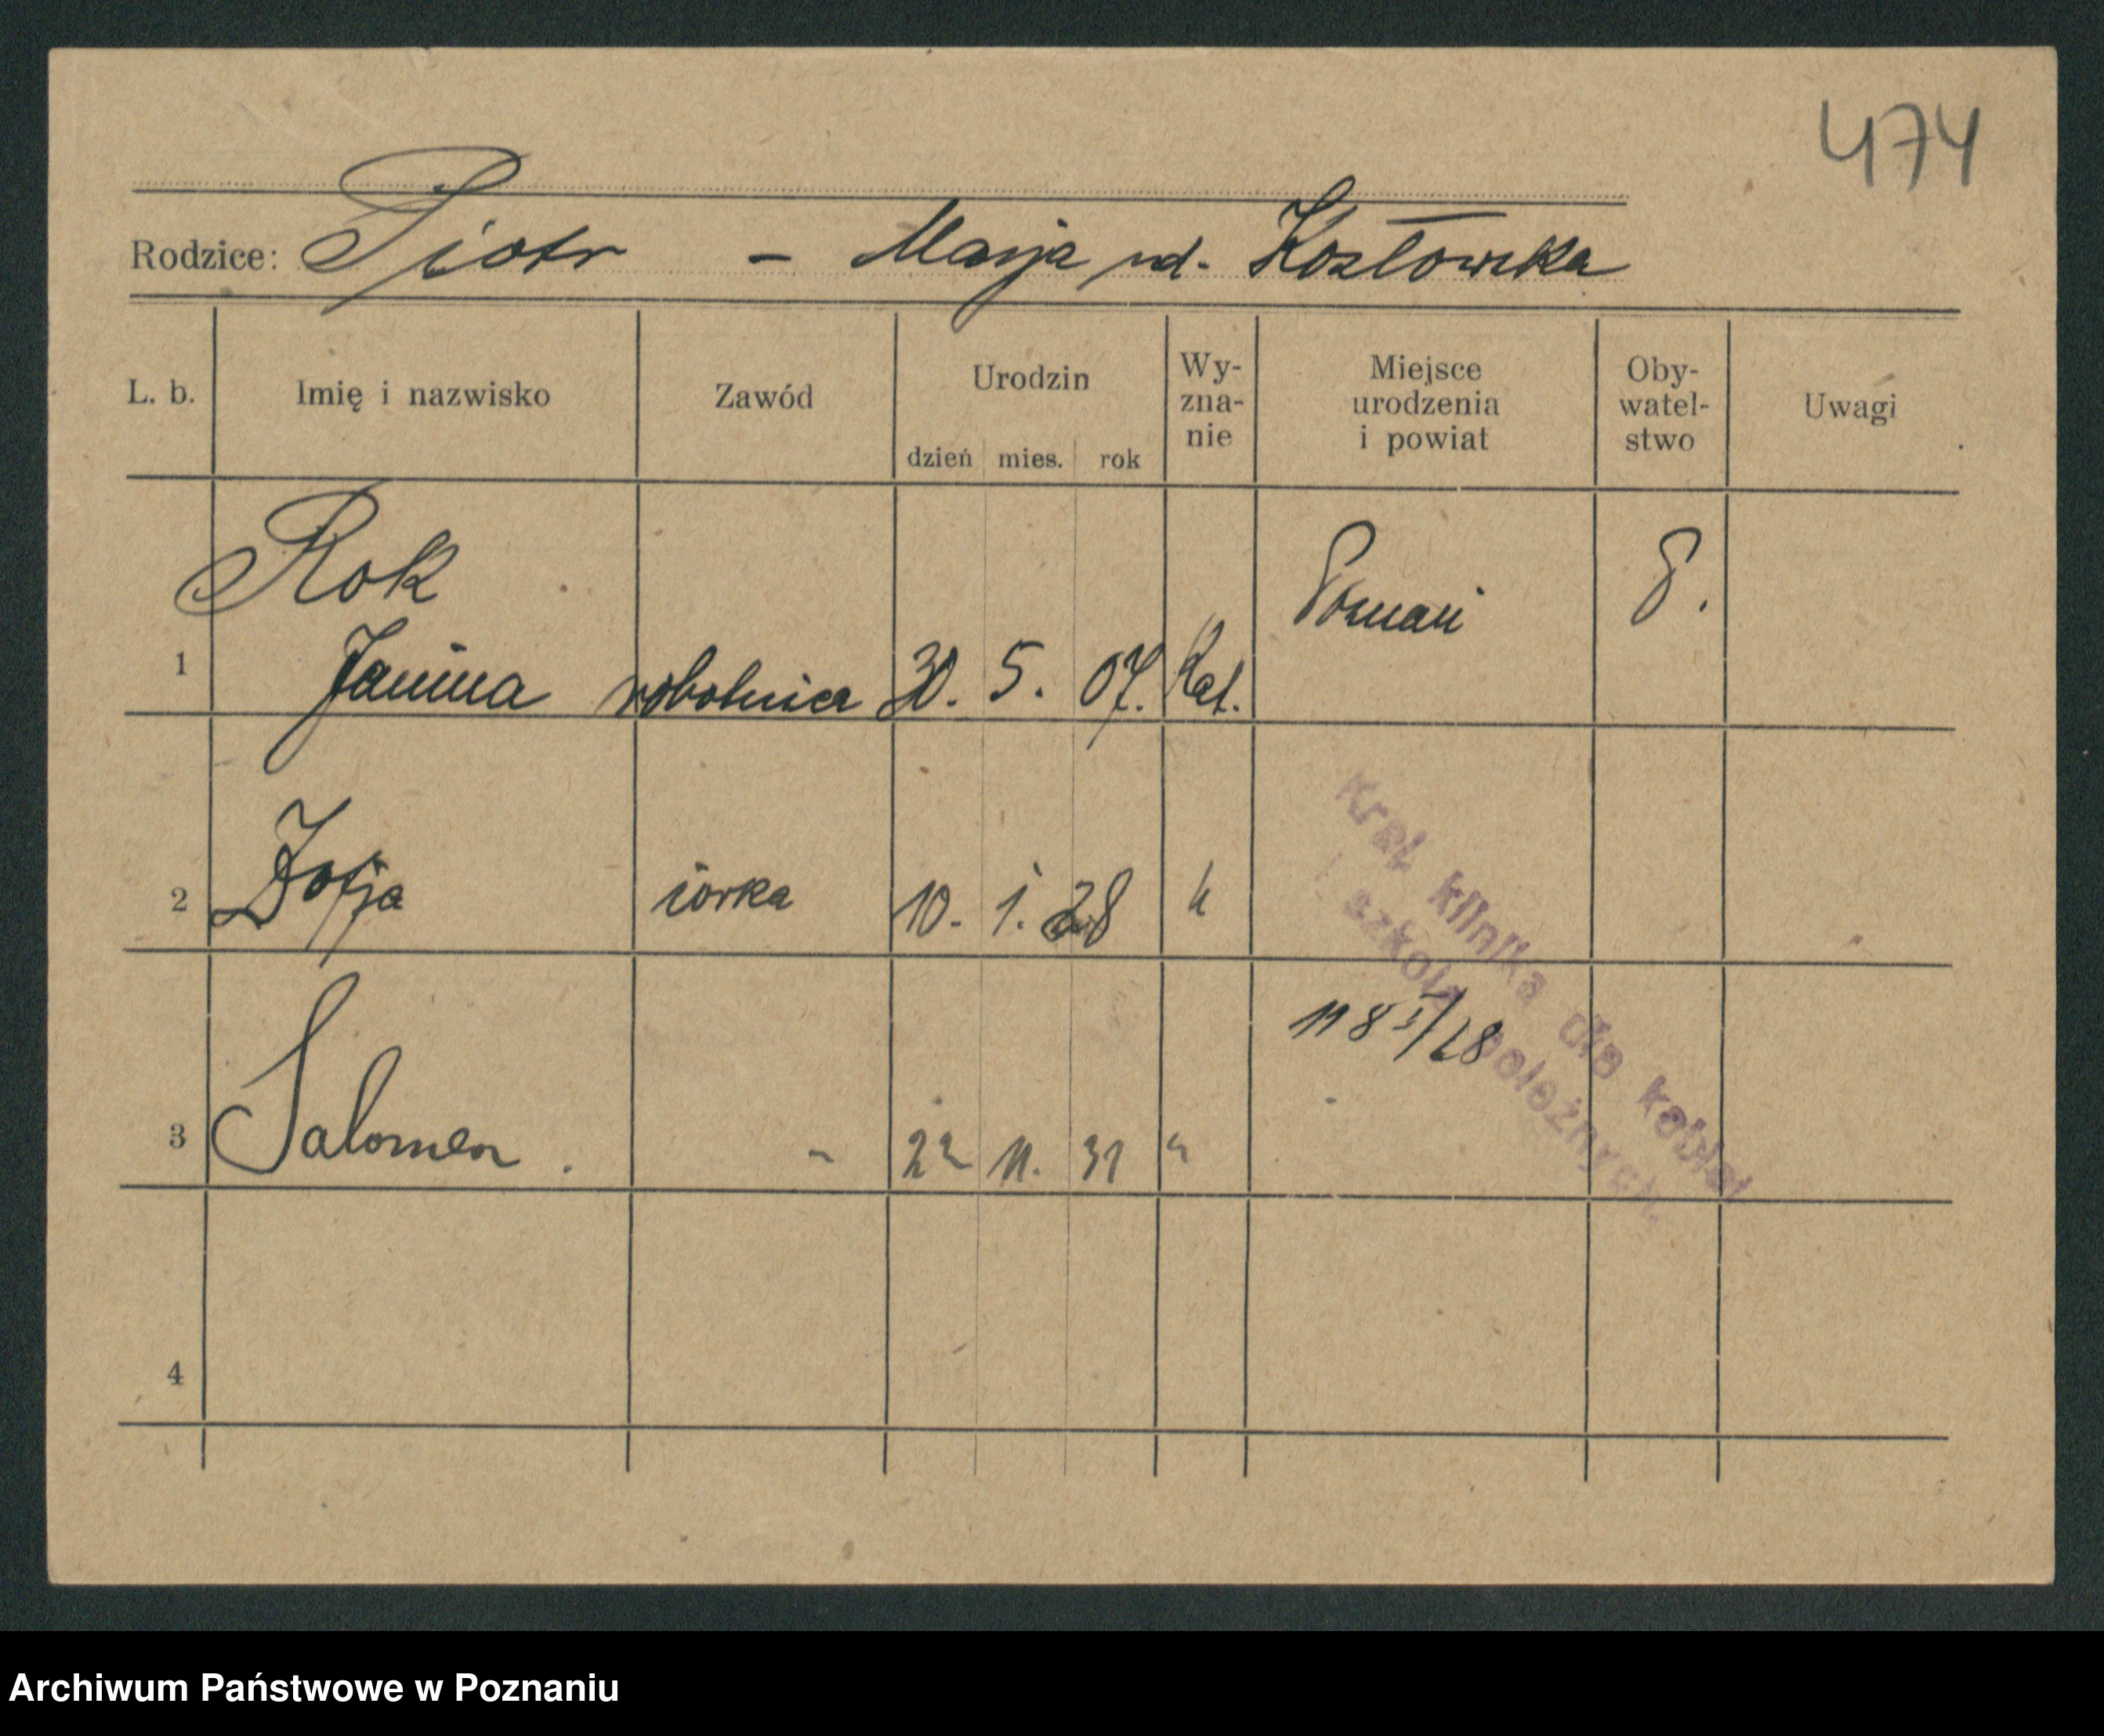 474
Rodzice: Piotr - Marja ud. Kozłowska
L. b. Imię i nazwisko Zawód Urodzin dzień mies. rok Wy-zna-nie Miejsce urodzenia i powiat Oby-watel-stwo Uwagi
Rok Poznań P.
1 Janina robotnica 30. 5. 07. Kat.
2 Zofja córka 10. 1. 28 "
118 I/28
3 Salomea . " 22 11. 31 "
4
Kraj. klinika dla kobiet
i szkoła położnych.
Archiwum Państwowe w Poznaniu